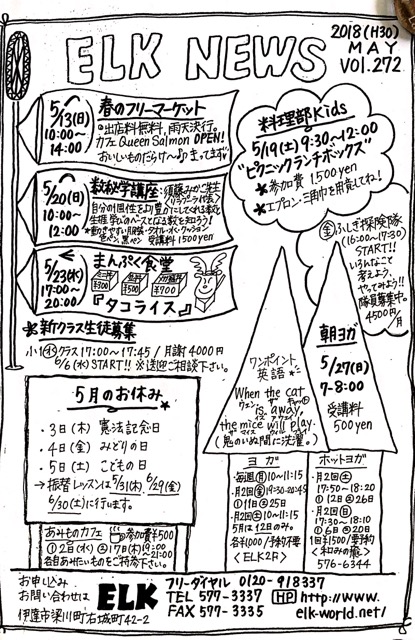 ELK NEWS
2018(H30)
MAY
VOL.272
5/13(日)
10:00〜
14:00
春のフリーマーケット
◎出店料無料,雨天決行。
カフェ Queen Salmon OPEN!
おいしいものだらけ〜♪ まってます♡
5/20(日)
10:00〜
12:00
数秘学講座
自分の個性をより豊かにしてくれる数と
生涯学びのベースとなる数を知ろう
*動きやすい服装・タオル・水・クッション
色ペン,黒ペン 受講料1500yen
5/23(水)
17:00〜
20:00
まんぷく食堂
¥300
¥500
¥700
『タコライス』
料理部Kids
5/19(土)9:30〜12:00
"ピクニックランチボックス"
*参加費 1500yen
*エプロン・三角巾を用意してね!
㊎ふしぎ探険隊
(16:00〜17:30)
START!!
いろんなこと
考えよう、
やってみよう!!
隊員募集中。
4500円/月
*新クラス生徒募集
小1㊌クラス 17:00〜17:45 / 月謝4000円
6/6(水)START!! ※送迎ご相談下さい。
5月のお休み
・3日(木) 憲法記念日
・4日(金) みどりの日
・5日(土) こどもの日
→振替レッスンは5/31(木)、6/29(金)
6/30(土)に行います。
ワンポイント
英語
When the cat
ウェン ザ キャット
is away,
イズ アウェイ
the mice will play.
ザ マイス ウィル プレイ
(鬼のいぬ間に洗濯。)
朝ヨガ
5/27(日)
7-8:00
受講料
500yen
あみものカフェ
参加費¥500
①2日(水) ②17日(木)19:00
〜21:00
各自あみたいものをご持参下さい。
ヨガ
・毎週(月)10〜11:15
・月2回㊎19:30-20:45
①11日②25日
・月2回(土)10〜11:15
5月は12日のみ。
各¥1000/予約不要
<ELK2F>
ホットヨガ
・月2回(土)
17:50〜18:20
①12日②26日
・月2回(日)
17:30〜18:10
①6日②20日
1回¥1500/要予約
<和みの癒>
576-6344
お申し込み
お問い合わせは
ELK
フリーダイヤル 0120-918337
TEL 577-3337
FAX 577-3335
HP http://www.
elk-world.net/
伊達市梁川町右城町42-2